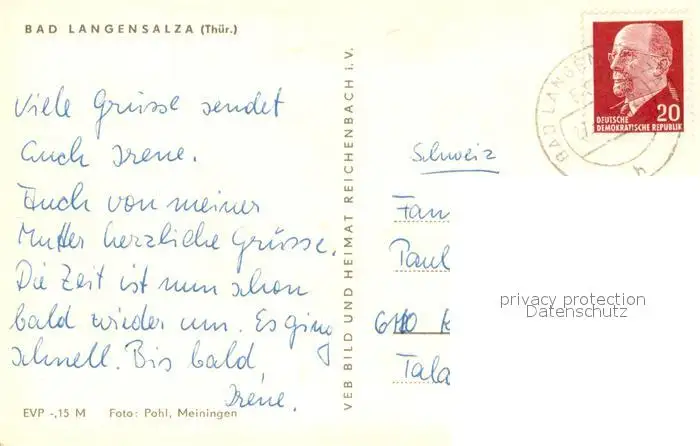 BAD LANGENSALZA (Thür.)
Viele Grüsse sendet
Euch Irene.
Auch von meiner
Mutter herzliche Grüsse.
Die Zeit ist nun schon
bald wieder um. Es ging
schnell. Bis bald
Irene.
EVP -,15 M Foto: Pohl, Meiningen
VEB BILD UND HEIMAT REICHENBACH i. V.
BAD LANGEN
DEUTSCHE 20
DEMOKRATISCHE REPUBLIK
Schweiz
Fam
Paul
Tala
privacy protection
Datenschutz